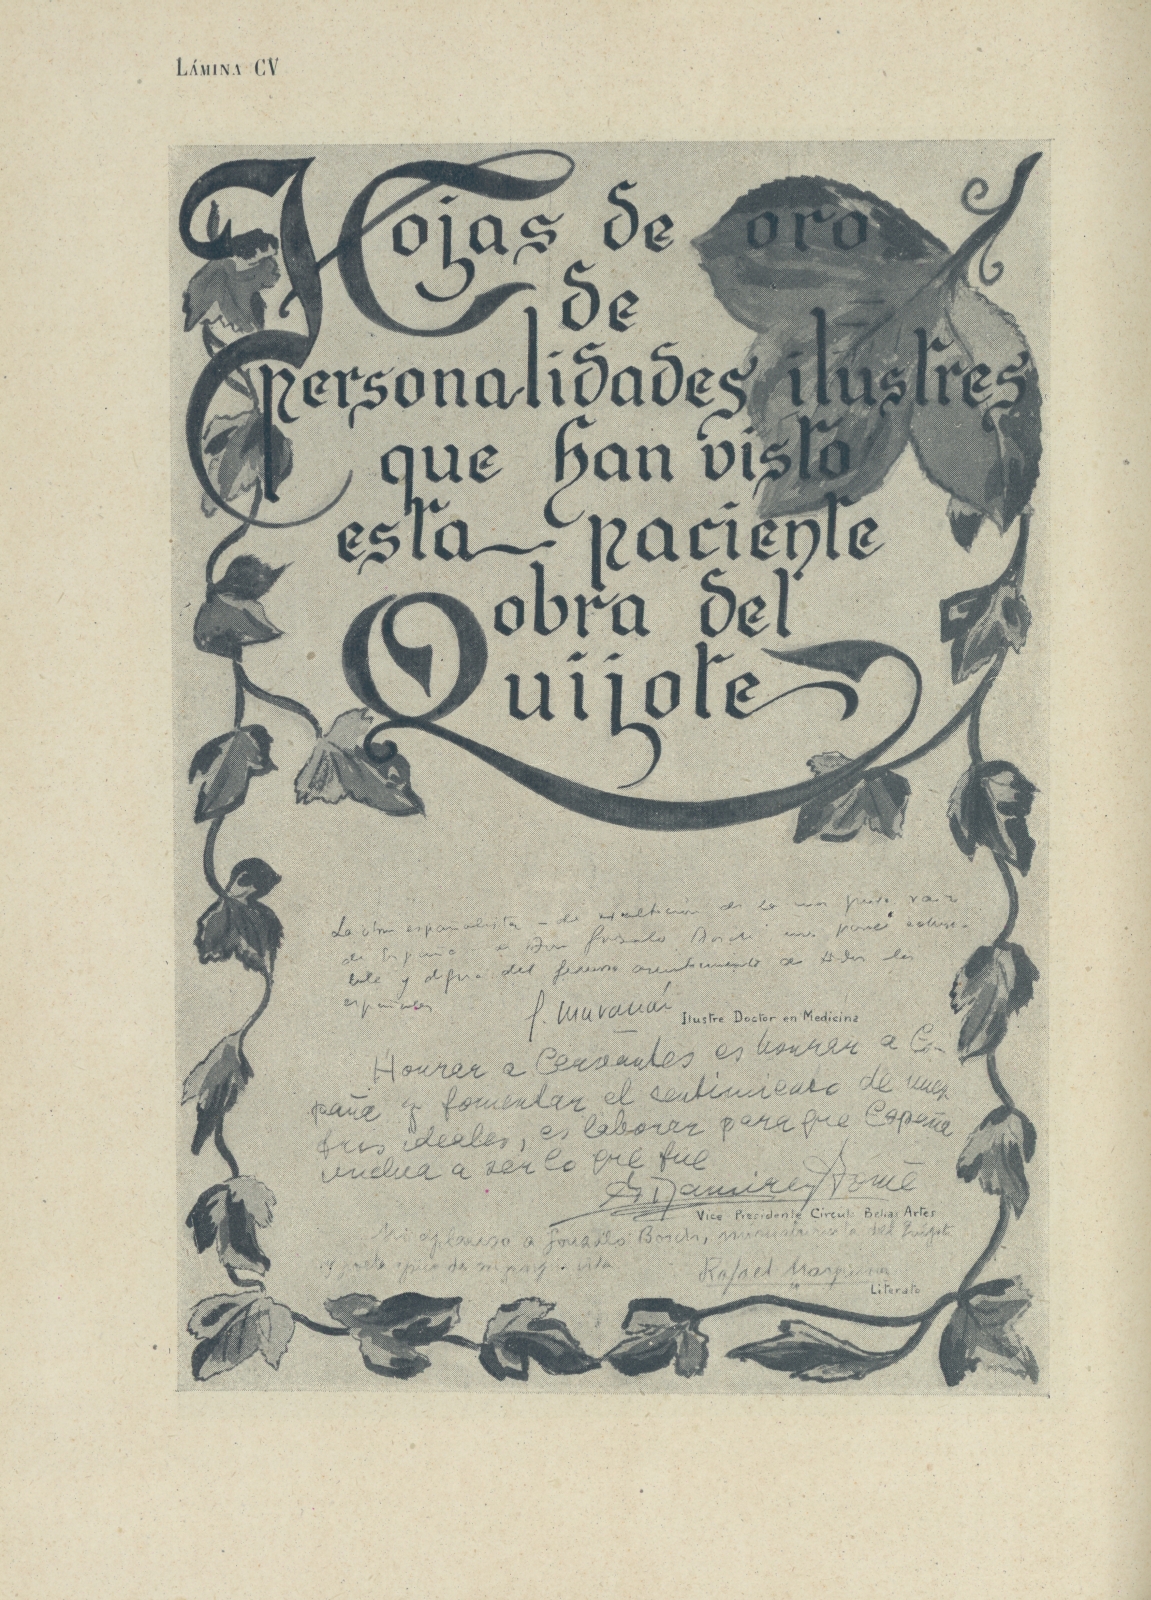 LÁMINA CV
Hojas de oro
de
personalidades ilustres
que han visto
esta paciente
obra del
Quijote
La obra españolista – de exaltación de la más pura raíz
de España – de Don Gonzalo Bosch
y del fervoroso de todos los
españoles
G. Marañón Ilustre Doctor en Medicina
Honrar a Cervantes es honrar a Es-
paña y fomentar el sentimiento de nues-
tros ideales, es laborar para que España
vuelva a ser lo que fue
Ramirez Tomé
Vice-Presidente Circulo Bellas Artes
Mi aplauso a Gonzalo Bosch, del Quijote
y vida
Rafael Marquina
Literato